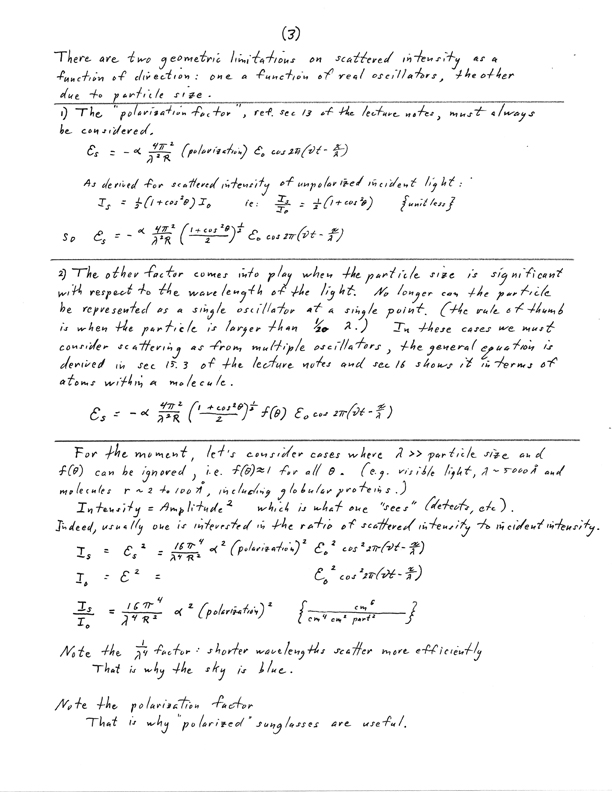 (3)
There are two geometric limitations on scattered intensity as a
function of direction: one a function of real oscillators, the other
due to particle size.
1) The "polarization factor", ref. sec 13 of the lecture notes, must always
be considered.
Ɛs = -α 4π²/λ²R (polarization) Ɛ₀ cos 2π(νt - x/λ)
As derived for scattered intensity of unpolarized incident light:
Is = ½(1+cos²θ) I₀ ie: Is/I₀ = ½(1+cos²θ) {unitless}
so Ɛs = -α 4π²/λ²R ((1+cos²θ)/2)^½ Ɛ₀ cos 2π(νt - x/λ)
2) The other factor comes into play when the particle size is significant
with respect to the wavelength of the light. No longer can the particle
be represented as a single oscillator at a single point. (the rule of thumb
is when the particle is larger than 1/20 λ.) In these cases we must
consider scattering as from multiple oscillators, the general equation is
derived in sec 15.3 of the lecture notes and sec 16 shows it in terms of
atoms within a molecule.
Ɛs = -α 4π²/λ²R ((1+cos²θ)/2)^½ f(θ) Ɛ₀ cos 2π(νt - x/λ)
For the moment, let's consider cases where λ >> particle size and
f(θ) can be ignored, i.e. f(θ)≈1 for all θ. (e.g. visible light, λ ~ 5000 Å and
molecules r ~ 2 to 100 Å, including globular proteins.)
Intensity = Amplitude² which is what one "sees" (detects, etc).
Indeed, usually one is interested in the ratio of scattered intensity to incident intensity.
Is = Ɛs² = 16π⁴/λ⁴R² α² (polarization)² Ɛ₀² cos² 2π(νt - x/λ)
I₀ = Ɛ² = Ɛ₀² cos² 2π(νt - x/λ)
Is/I₀ = 16π⁴/λ⁴R² α² (polarization)² {cm⁶/cm⁴ cm² part²}
Note the 1/λ⁴ factor: shorter wavelengths scatter more efficiently
That is why the sky is blue.
Note the polarization factor
That is why "polarized" sunglasses are useful.